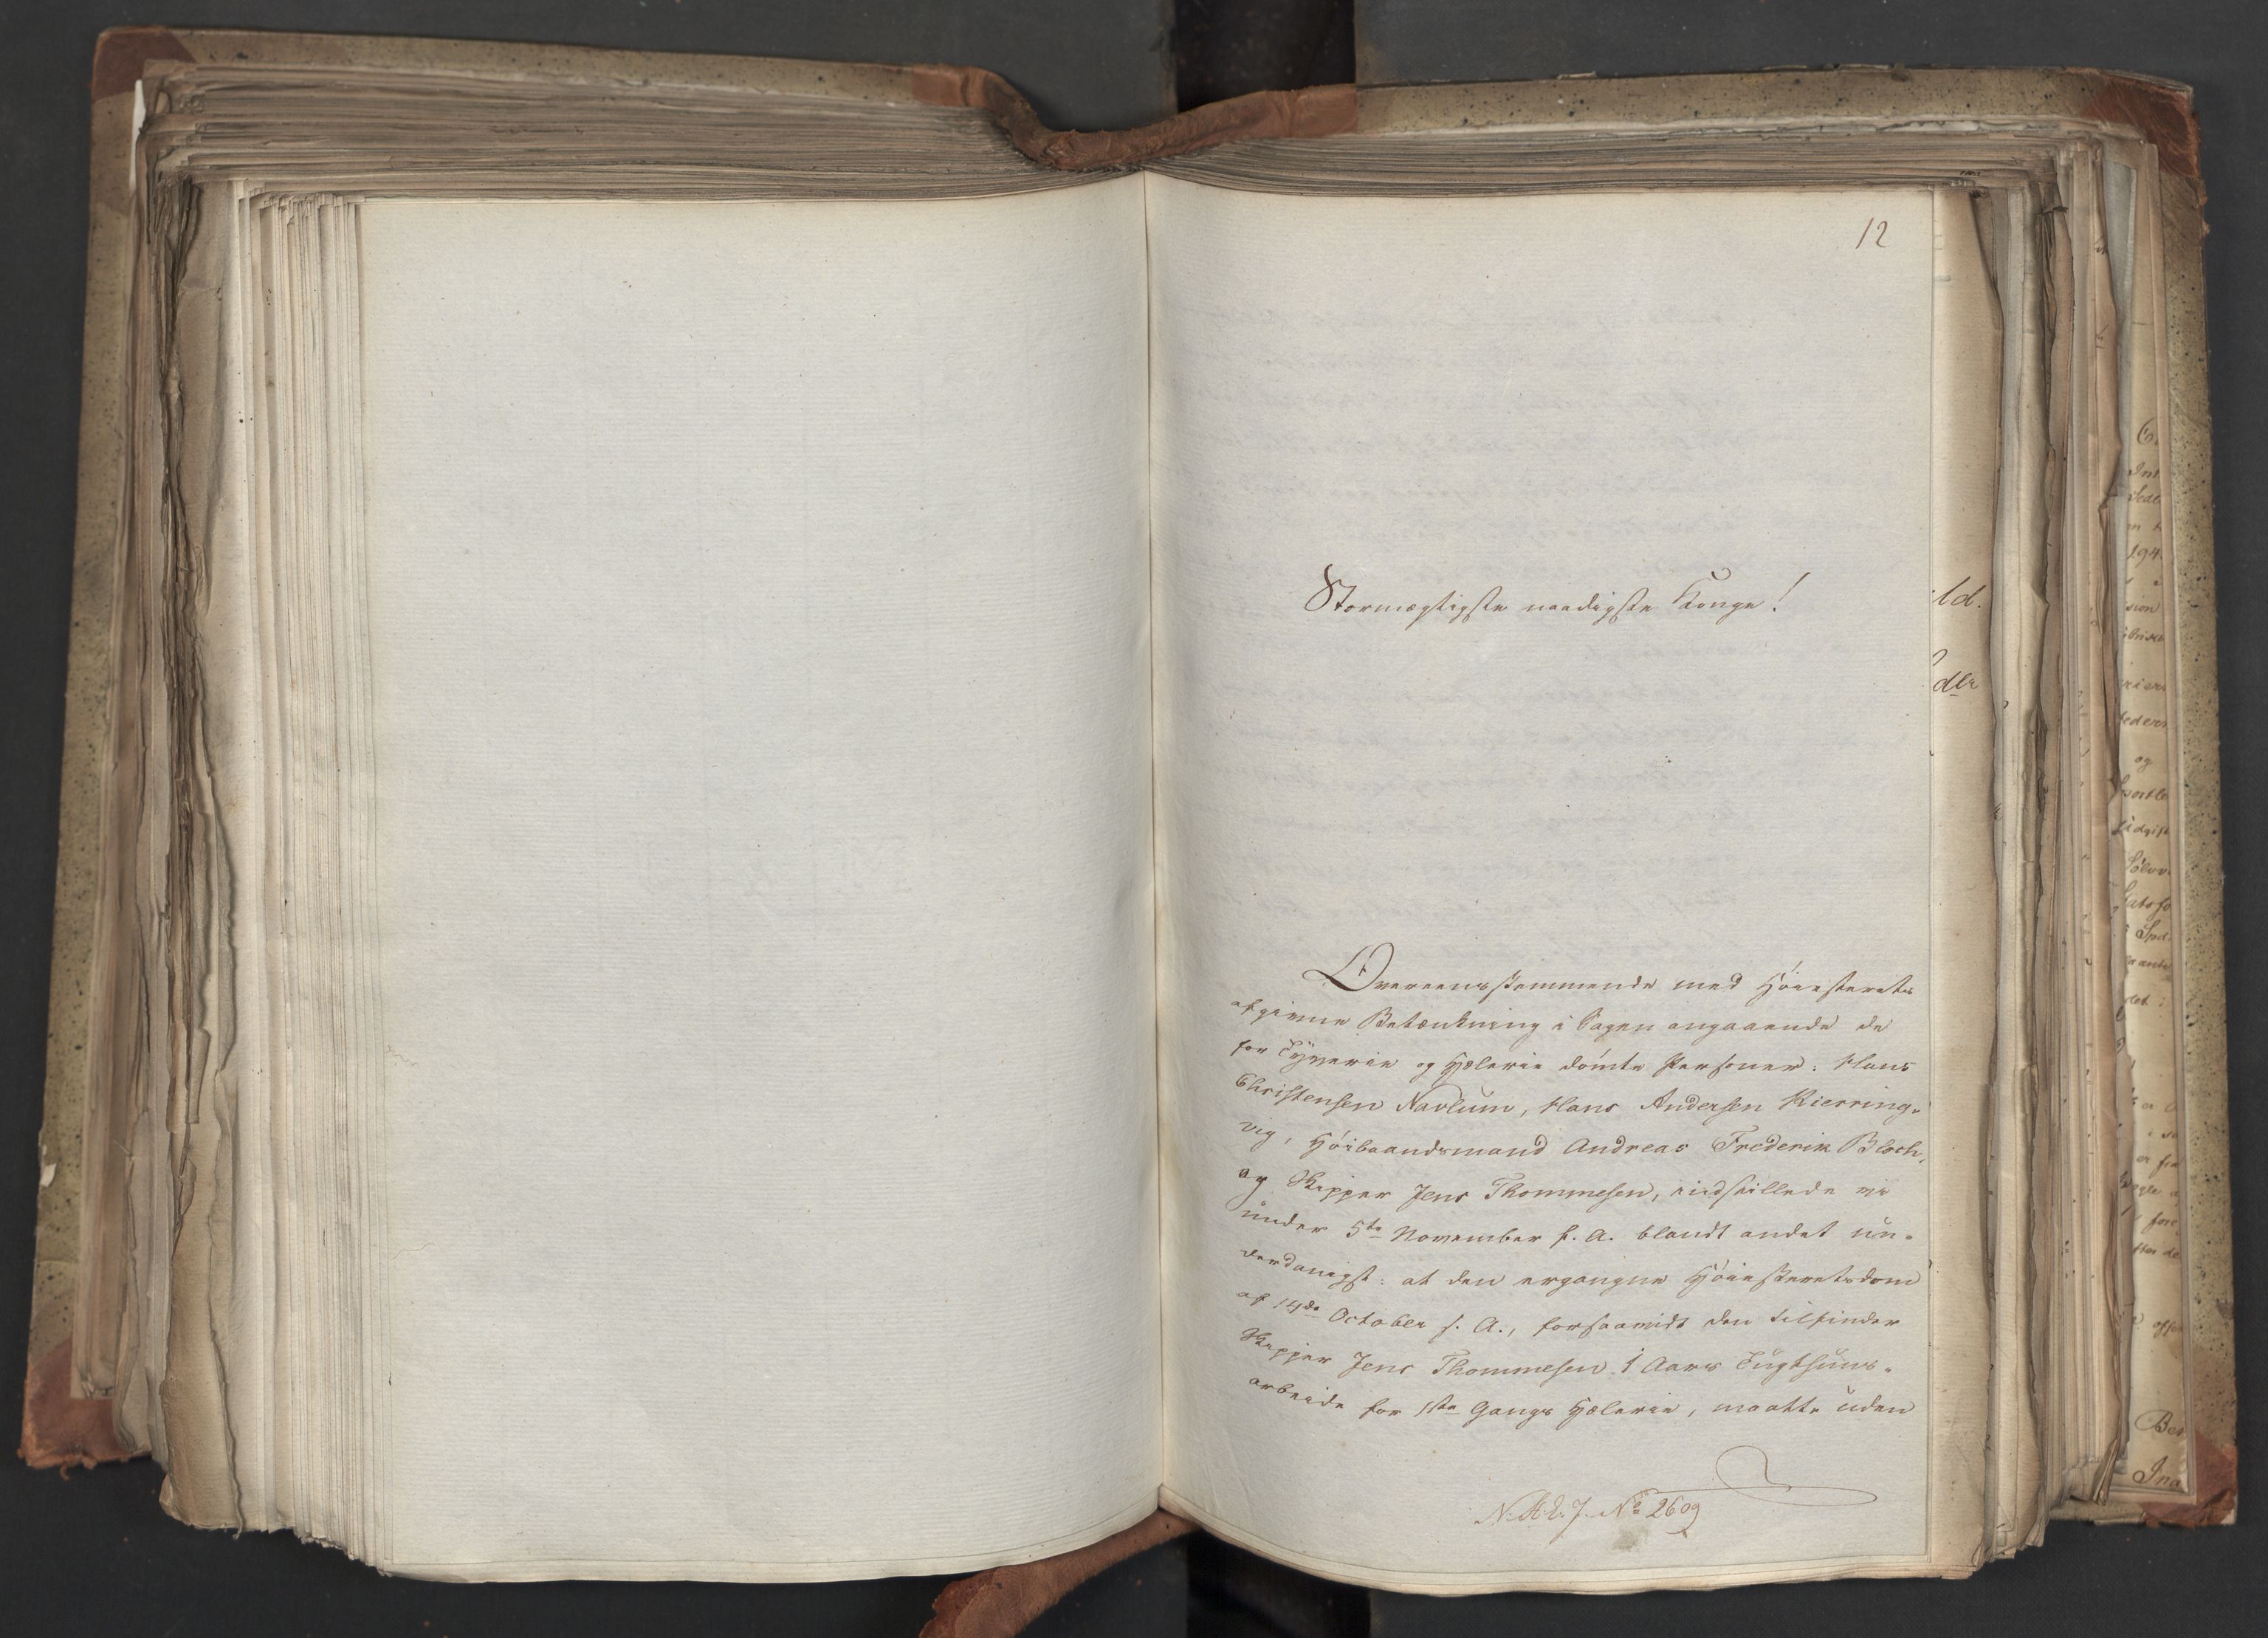 12
Stormægtigste naadigste Konge!
Overeensstemmende med Höiesterets
afgivne Betænkning i Sagen angaaende de
for Tyverie og Hælerie dömte Personer: Hans
Christensen Navlum, Hans Andersen Kierring-
vig, Höibaandsmand Andreas Frederik Bloch,
og Skipper Jens Thommesen, indstillede vi
under 5te November f. A. blandt andet un-
derdanigst: at den ergangne Höiesteretsdom
af 14de October s. A., forsaavidt den tilfinder
Skipper Jens Thommesen 1 Aars Tugthuus-
arbeide for 1ste Gangs Hælerie, maatte uden
No 2609
ld.
dlr
og